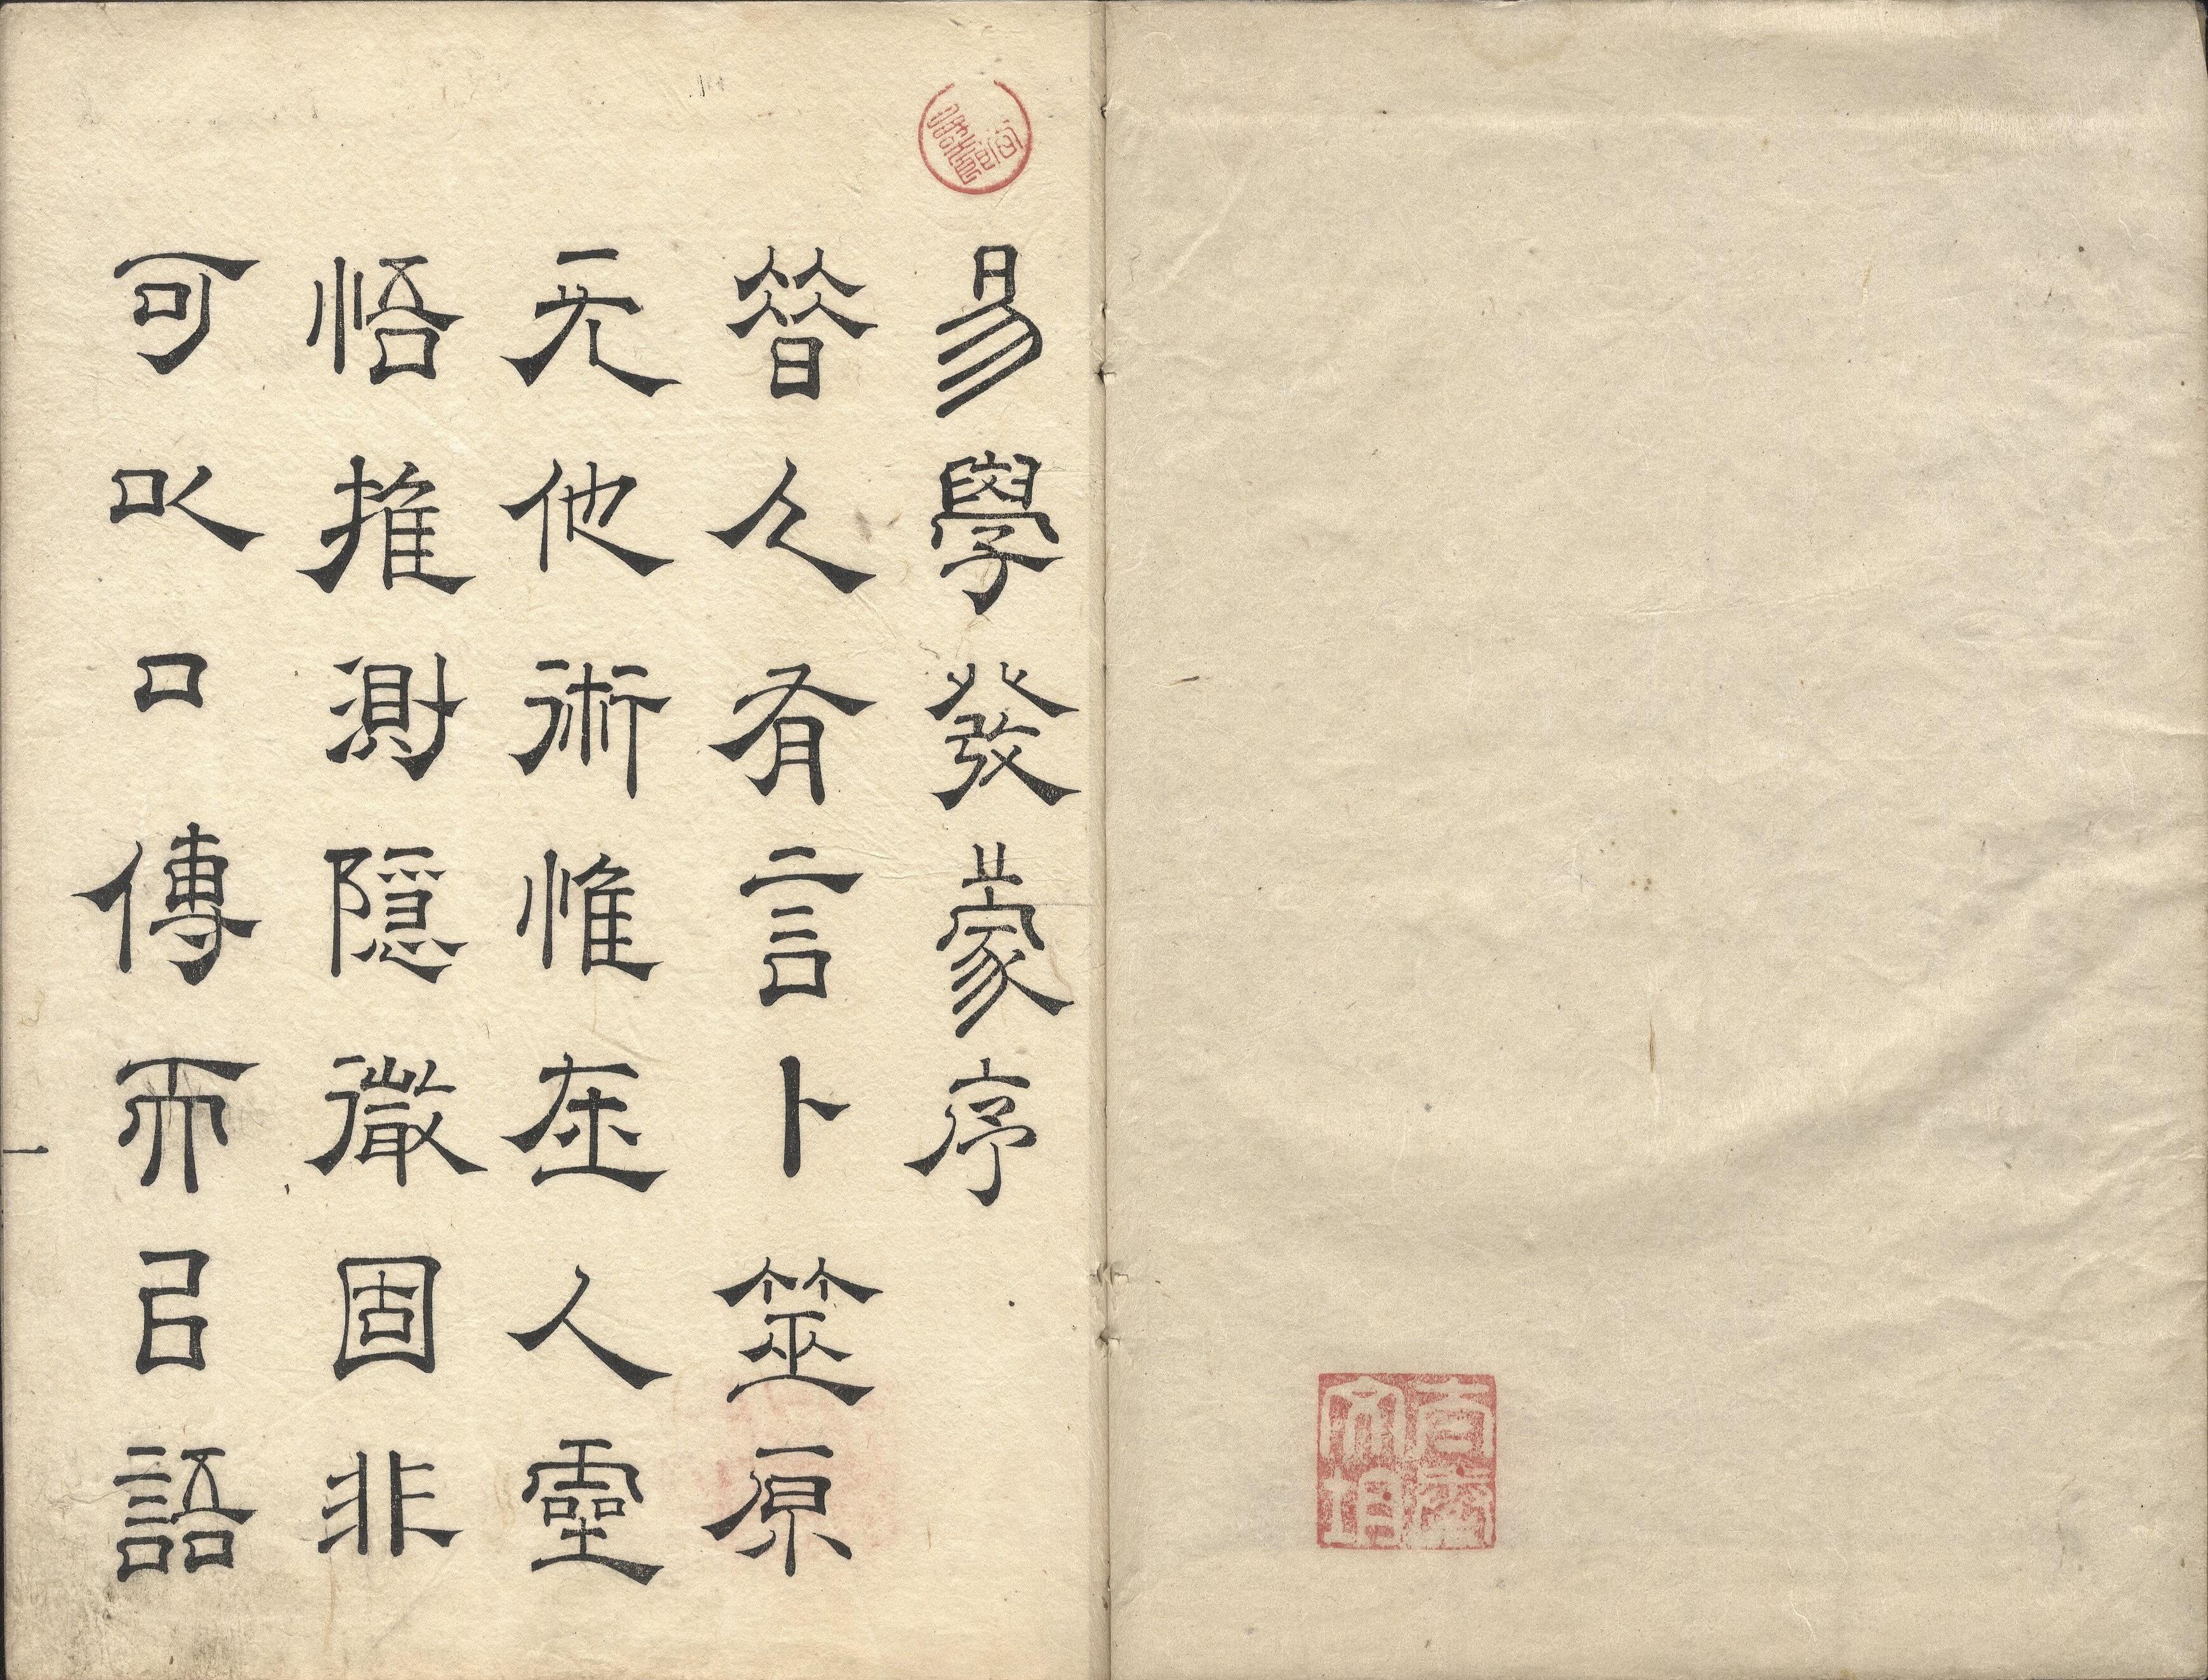 易學發蒙序
昝人有言卜筮原
无他術惟在人靈
悟推測隱微固非
可以口傳而㠯語
一